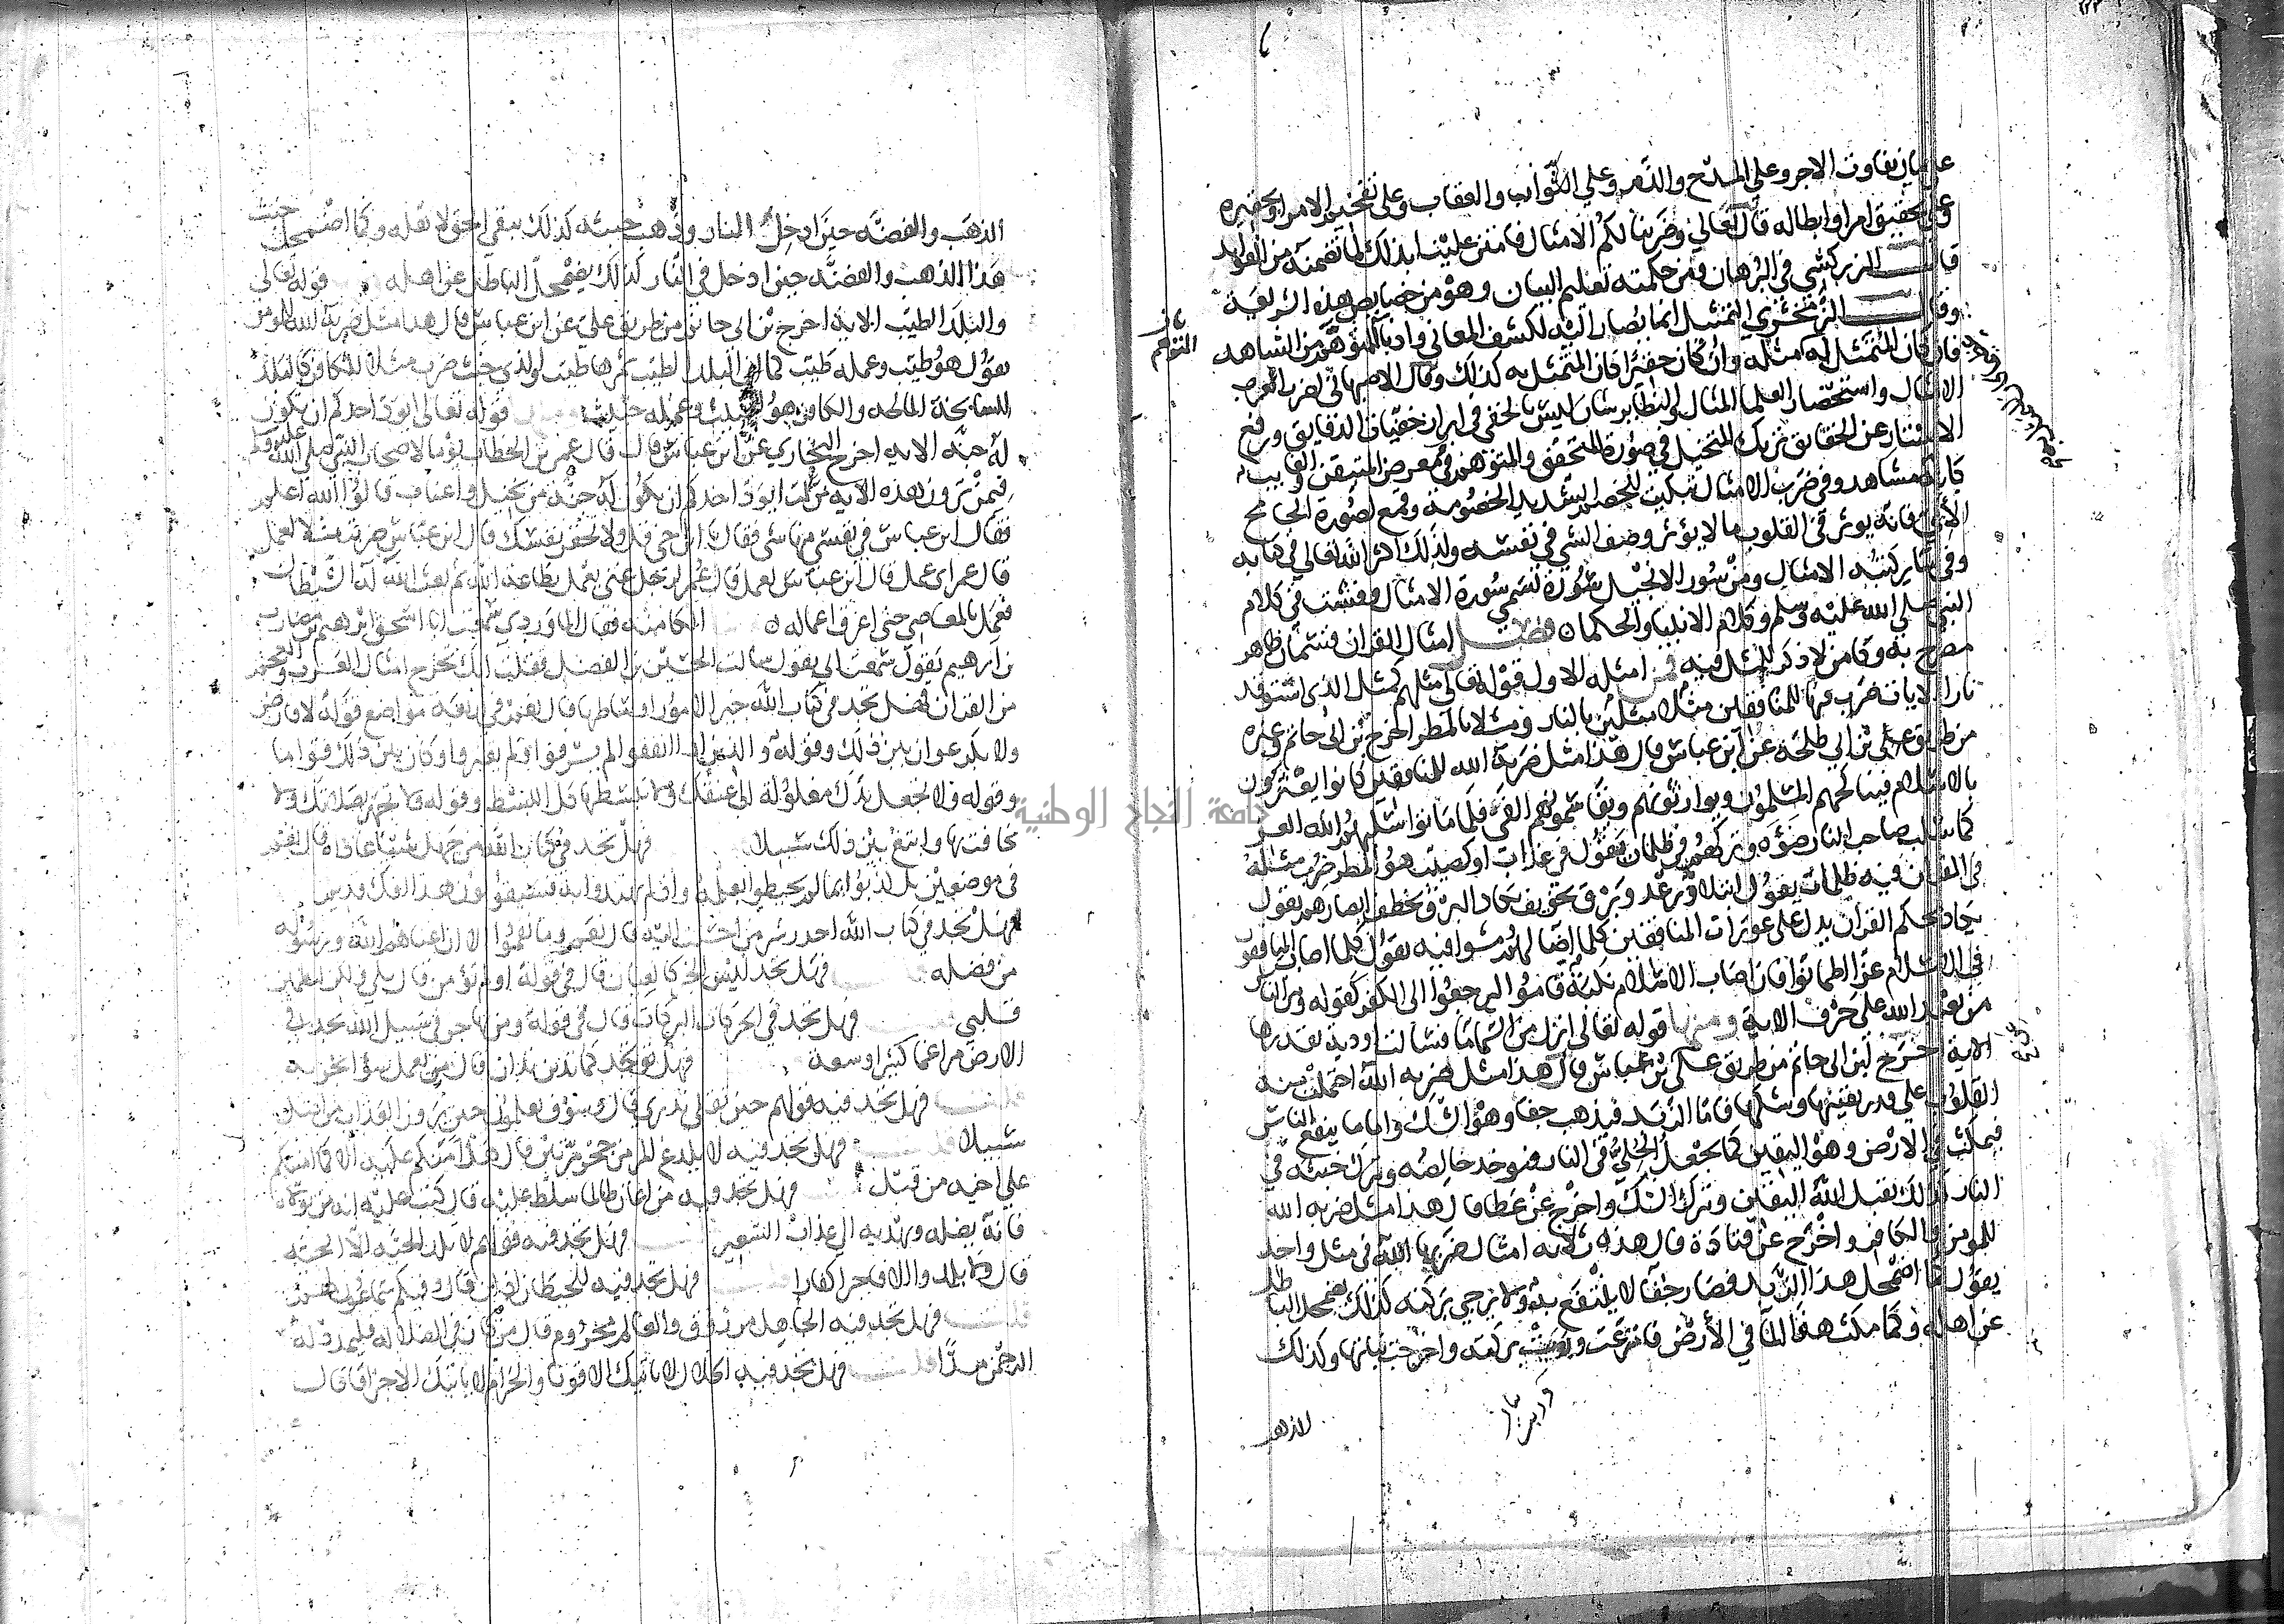 على بيان تفاوت الاجر وعلى المدح والذم وعلى الثواب والعقاب وعلى تفخيم الامر او تحقيره
وعلى تحقيق امر او ابطاله قال تعالى وضربنا لكم الامثال فامتن علينا بذلك لما تضمنه من الفوايد
قال الزركشي في البرهان ومن حكمته تعليم البيان وهو من خصايص هذه الشريعة
وقال الزمخشري التمثيل انما يصار اليه لكشف المعاني وادنا المتوهم من الشاهد
فان كان المتمثل له مثله وان كان حقيرا كان المتمثل به كذلك وقال الاصبهاني لضرب العرب
الامثال واستحضار العلما المثال والنظاير شان ليس بالخفي في ابراز خفيات الدقايق ورفع
الاستار عن الحقايق تريك المتخيل في صورة المتحقق والمتوهم في معرض المتيقن والغايب
كانه مشاهد وفي ضرب الامثال تبكيت للخصم الشديد الخصومة وقمع لصورة الجامح
الابي فانه يوثر في القلوب ما لا يؤثر وصف الشي في نفسه ولذلك اكثر الله تعالى في كتابه
وفي ساير كتبه الامثال ومن سور الانجيل سورة تسمى سورة الامثال وفشت في كلام
النبي صلى الله عليه وسلم وكلام الانبيا والحكما فصل امثال القران قسمان ظاهر
مصرح به وكامن لا ذكر للمثل فيه فمن امثلة الاول قوله تعالى مثلهم كمثل الذي استوقد
نارا الايات ضرب فيها للمنافقين مثلا مثلين بالنار ومثلا بالمطر اخرج ابن ابي حاتم وغيره
من طريق علي بن ابي طلحة عن ابن عباس قال هذا مثل ضربه الله للمنافقين كانوا يعتزون
بالاسلام فيناكحهم المسلمون ويوارثونهم ويقاسمونهم الفي فلما ماتوا سلبهم الله العز
كما سلب صاحب النار ضوءه وتركهم في ظلمات يقول في عذاب او كصيب هو المطر ضرب مثله
في القران فيه ظلمات يقول ابتلا ورعد وبرق تخويف يكاد البرق يخطف ابصارهم يقول
يكاد محكم القران يدل على عورات المنافقين كلما اضا لهم مشوا فيه يقول كلما اصاب المنافقون
في الاسلام عزا اطمانوا فان اصاب الاسلام نكبة قاموا ليرجعوا الى الكفر كقوله ومن الناس
من يعبد الله على حرف الاية ومنها قوله تعالى انزل من السما ما فسالت اودية بقدرها
الاية اخرج ابن ابي حاتم من طريق علي عن ابن عباس قال هذا مثل ضربه الله احتملت منه
القلوب على قدر يقينها وشكها فاما الزبد فيذهب جفا وهو الشك واما ما ينفع الناس
فيمكث في الارض وهو اليقين كما يجعل الحلي في النار فيوخذ خالصه ويترك خبثه في
النار كذلك يقبل الله اليقين ويترك الشك واخرج عن عطا قال هذا مثل ضربه الله
للمومن والكافر واخرج عن قتادة قال هذه ثلاثة امثال ضربها الله في مثل واحد
يقول كما اضمحل هذا الزبد فصار جفا لا ينتفع به ولا ترجى بركته كذلك يضمحل الباطل
عن اهله وكما مكث هذا الما في الارض فامرعت وربت بركته واخرجت نباتها وكذلك
الذهب والفضه حين ادخل النار وذهب خبثه كذلك يبقى الحق لاهله وكما اضمحل خبث
هذا الذهب والفضه حين ادخل في النار كذلك يضمحل الباطل عن اهله قوله تعالى
والبلد الطيب الاية اخرج ابن ابي حاتم من طريق علي عن ابن عباس قال هذا مثل ضربه الله للمومن
يقول هو طيب وعمله طيب كما ان البلد الطيب ثمرها طيب والذي خبث ضرب مثلا للكافر كالبلد
السبخة المالحه والكافر هو الخبيث وعمله خبيث قوله تعالى ايود احدكم ان تكون
له جنه الايه اخرج البخاري عن ابن عباس قال قال عمر بن الخطاب يوما لاصحاب النبي صلى الله عليه وسلم
فيمن ترون هذه الايه نزلت ايود احدكم ان تكون له جنة من نخيل واعناب قالوا الله اعلم
فقال ابن عباس في نفسي منها شي فقال يا ابن اخي قل ولا تحقر نفسك قال ابن عباس ضربت مثلا لعمل
قال عمر اي عمل قال ابن عباس لعمل قال عمر لرجل غني يعمل بطاعة الله ثم بعث الله له الشيطان
فعمل بالمعاصي حتى اغرق اعماله واما الكامنه فقال الماوردي سمعت ابا اسحق ابرهيم بن مضارب
بن ابرهيم يقول سمعت ابي يقول سالت الحسين بن الفضل فقلت انك تخرج امثال العرب والعجم
من القران فهل تجد في كتاب الله خير الامور اوساطها قال نعم في اربعة مواضع قوله لا فارض
ولا بكر عوان بين ذلك وقوله والذين اذا انفقوا لم يسرفوا ولم يقتروا وكان بين ذلك قواما
وقوله ولا تجعل يدك مغلولة الى عنقك ولا تبسطها كل البسط وقوله ولا تجهر بصلاتك ولا
تخافت بها وابتغ بين ذلك سبيلا فهل تجد في كتاب الله من جهل شيئا عاداه قال نعم
في موضعين بل كذبوا بما لم يحيطوا بعلمه واذ لم يهتدوا به فسيقولون هذا افك قديم
فهل تجد في كتاب الله احذر شر من احسنت اليه قال نعم وما نقموا الا ان اغناهم الله ورسوله
من فضله فهل تجد ليس الخبر كالعيان قال في قوله اولم تؤمن قال بلى ولكن ليطمئن
قلبي فهل تجد في الحركات البركات قال في قوله ومن يهاجر في سبيل الله يجد في
الارض مراغما كثيرا وسعة فهل تجد كما تدين تدان قال من يعمل سؤا يجز به
قلت فهل تجد فيه قولهم حين تقلي تدري قال وسوف يعلمون حين يرون العذاب من اضل
سبيلا قلت فهل تجد فيه لا يلدغ المومن من جحر مرتين قال هل امنكم عليه الا كما امنتكم
على اخيه من قبل فهل تجد فيه من اعان ظالما سلط عليه قال كتب عليه انه من تولاه
فانه يضله ويهديه الى عذاب السعير فهل تجد فيه قولهم لا تلد الحيه الا الحيه
قال ولا يلدوا الا فاجرا كفارا فهل تجد فيه للحيطان اذان قال وفيكم سماعون لهم
قلت فهل تجد فيه الجاهل مرزوق والعالم محروم قال من كان في الضلاله فليمدد له
الرحمن مدا قلت فهل تجد فيه الحلال لا ياتيك الا قوتا والحرام لا ياتيك الا جزافا قال
جامعة النجاح الوطنية